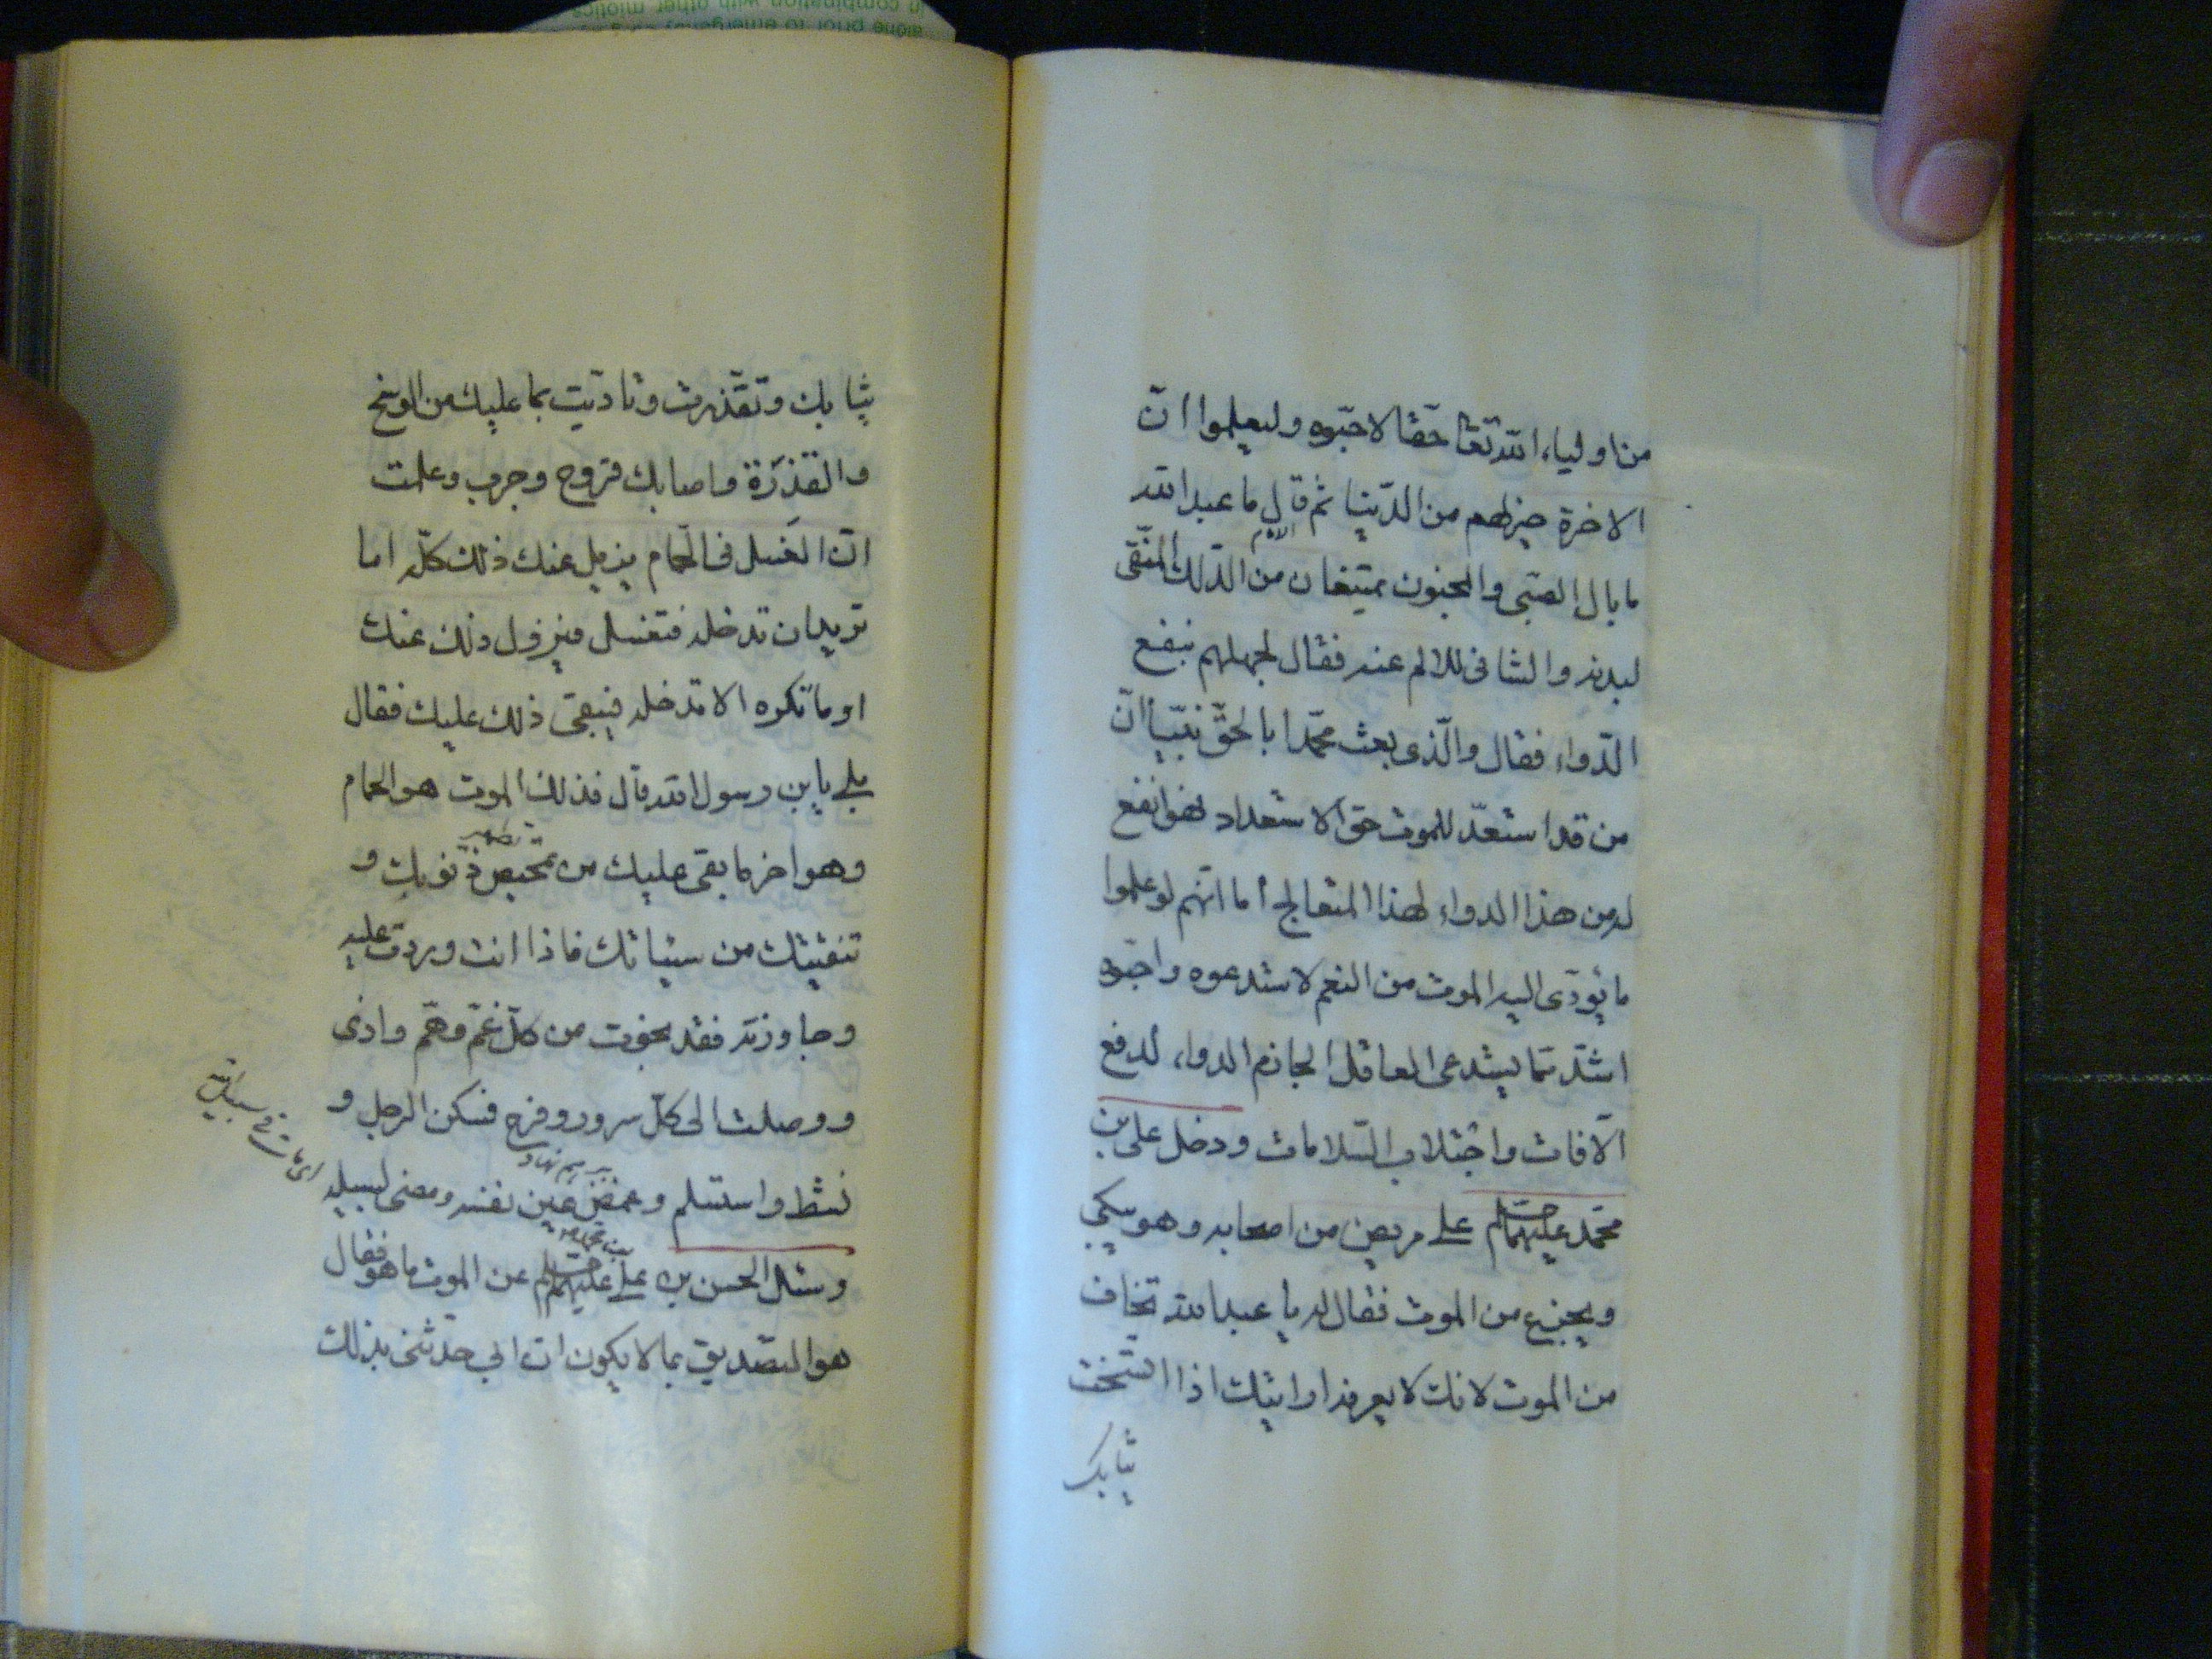 من اولياء الله تعا حقا لاحبّوه وليعلموا انّ
الاخرة خير لهم من الدّنيا ثم قال يا عبد الله
ما بال الصّبى والمجنون يمتنعان من الدّواء المنقّى
لبدنه والنافى للالم عنه فقال لجهلهم بنفع
الدّواء فقال والّذى بعث محمّدا بالحقّ نبيّا انّ
من قد استعدّ للموت حق الاستعداد فهو انفع
له من هذا الدواء لهذا المتعالج أما انّهم لو علموا
ما يؤدّى اليه الموت من النعم لاستدعوه واحبّوه
اشدّ ممّا يستدعى العاقل الجازم الدواء لدفع
الآفات واجتلاب السّلامات ودخل على بن
محمّد عليهما السلام على مريض من اصحابه وهو يبكى
ويجزع من الموت فقال له يا عبد الله تخاف
من الموت لانك لا يعرفه ارايتك اذا اتسخت
ثيابك
ثيابك وتقذّرت وتاذّيت بما عليك من الوسخ
والقذرة واصابك قروح وجرب وعلمت
انّ الغسل فى الحمام يزيل عنك ذلك كلّه اما
تريد ان تدخله فتغسل فيزول ذلك عنك
او ما تكره الا تدخله فيبقى ذلك عليك فقال
بلى يابن رسول الله قال فذلك الموت هو الحمام
تطهير
وهو اخر ما بقى عليك من تمحيص ذنوبك و
تنقيتك من سيئاتك فاذا انت وردت عليه
وجاوزته فقد نجوت من كلّ غمّ وهمّ واذى
ووصلت الى كلّ سرور وفرح فسكن الرجل و
نشط واستسلم وغمض عين نفسه ومضى لسبيله
وسئل الحسن بن على عليهما السلام عن الموت ما هو فقال
هو التصديق بما لا يكون ان ابي حدثنى بذلك